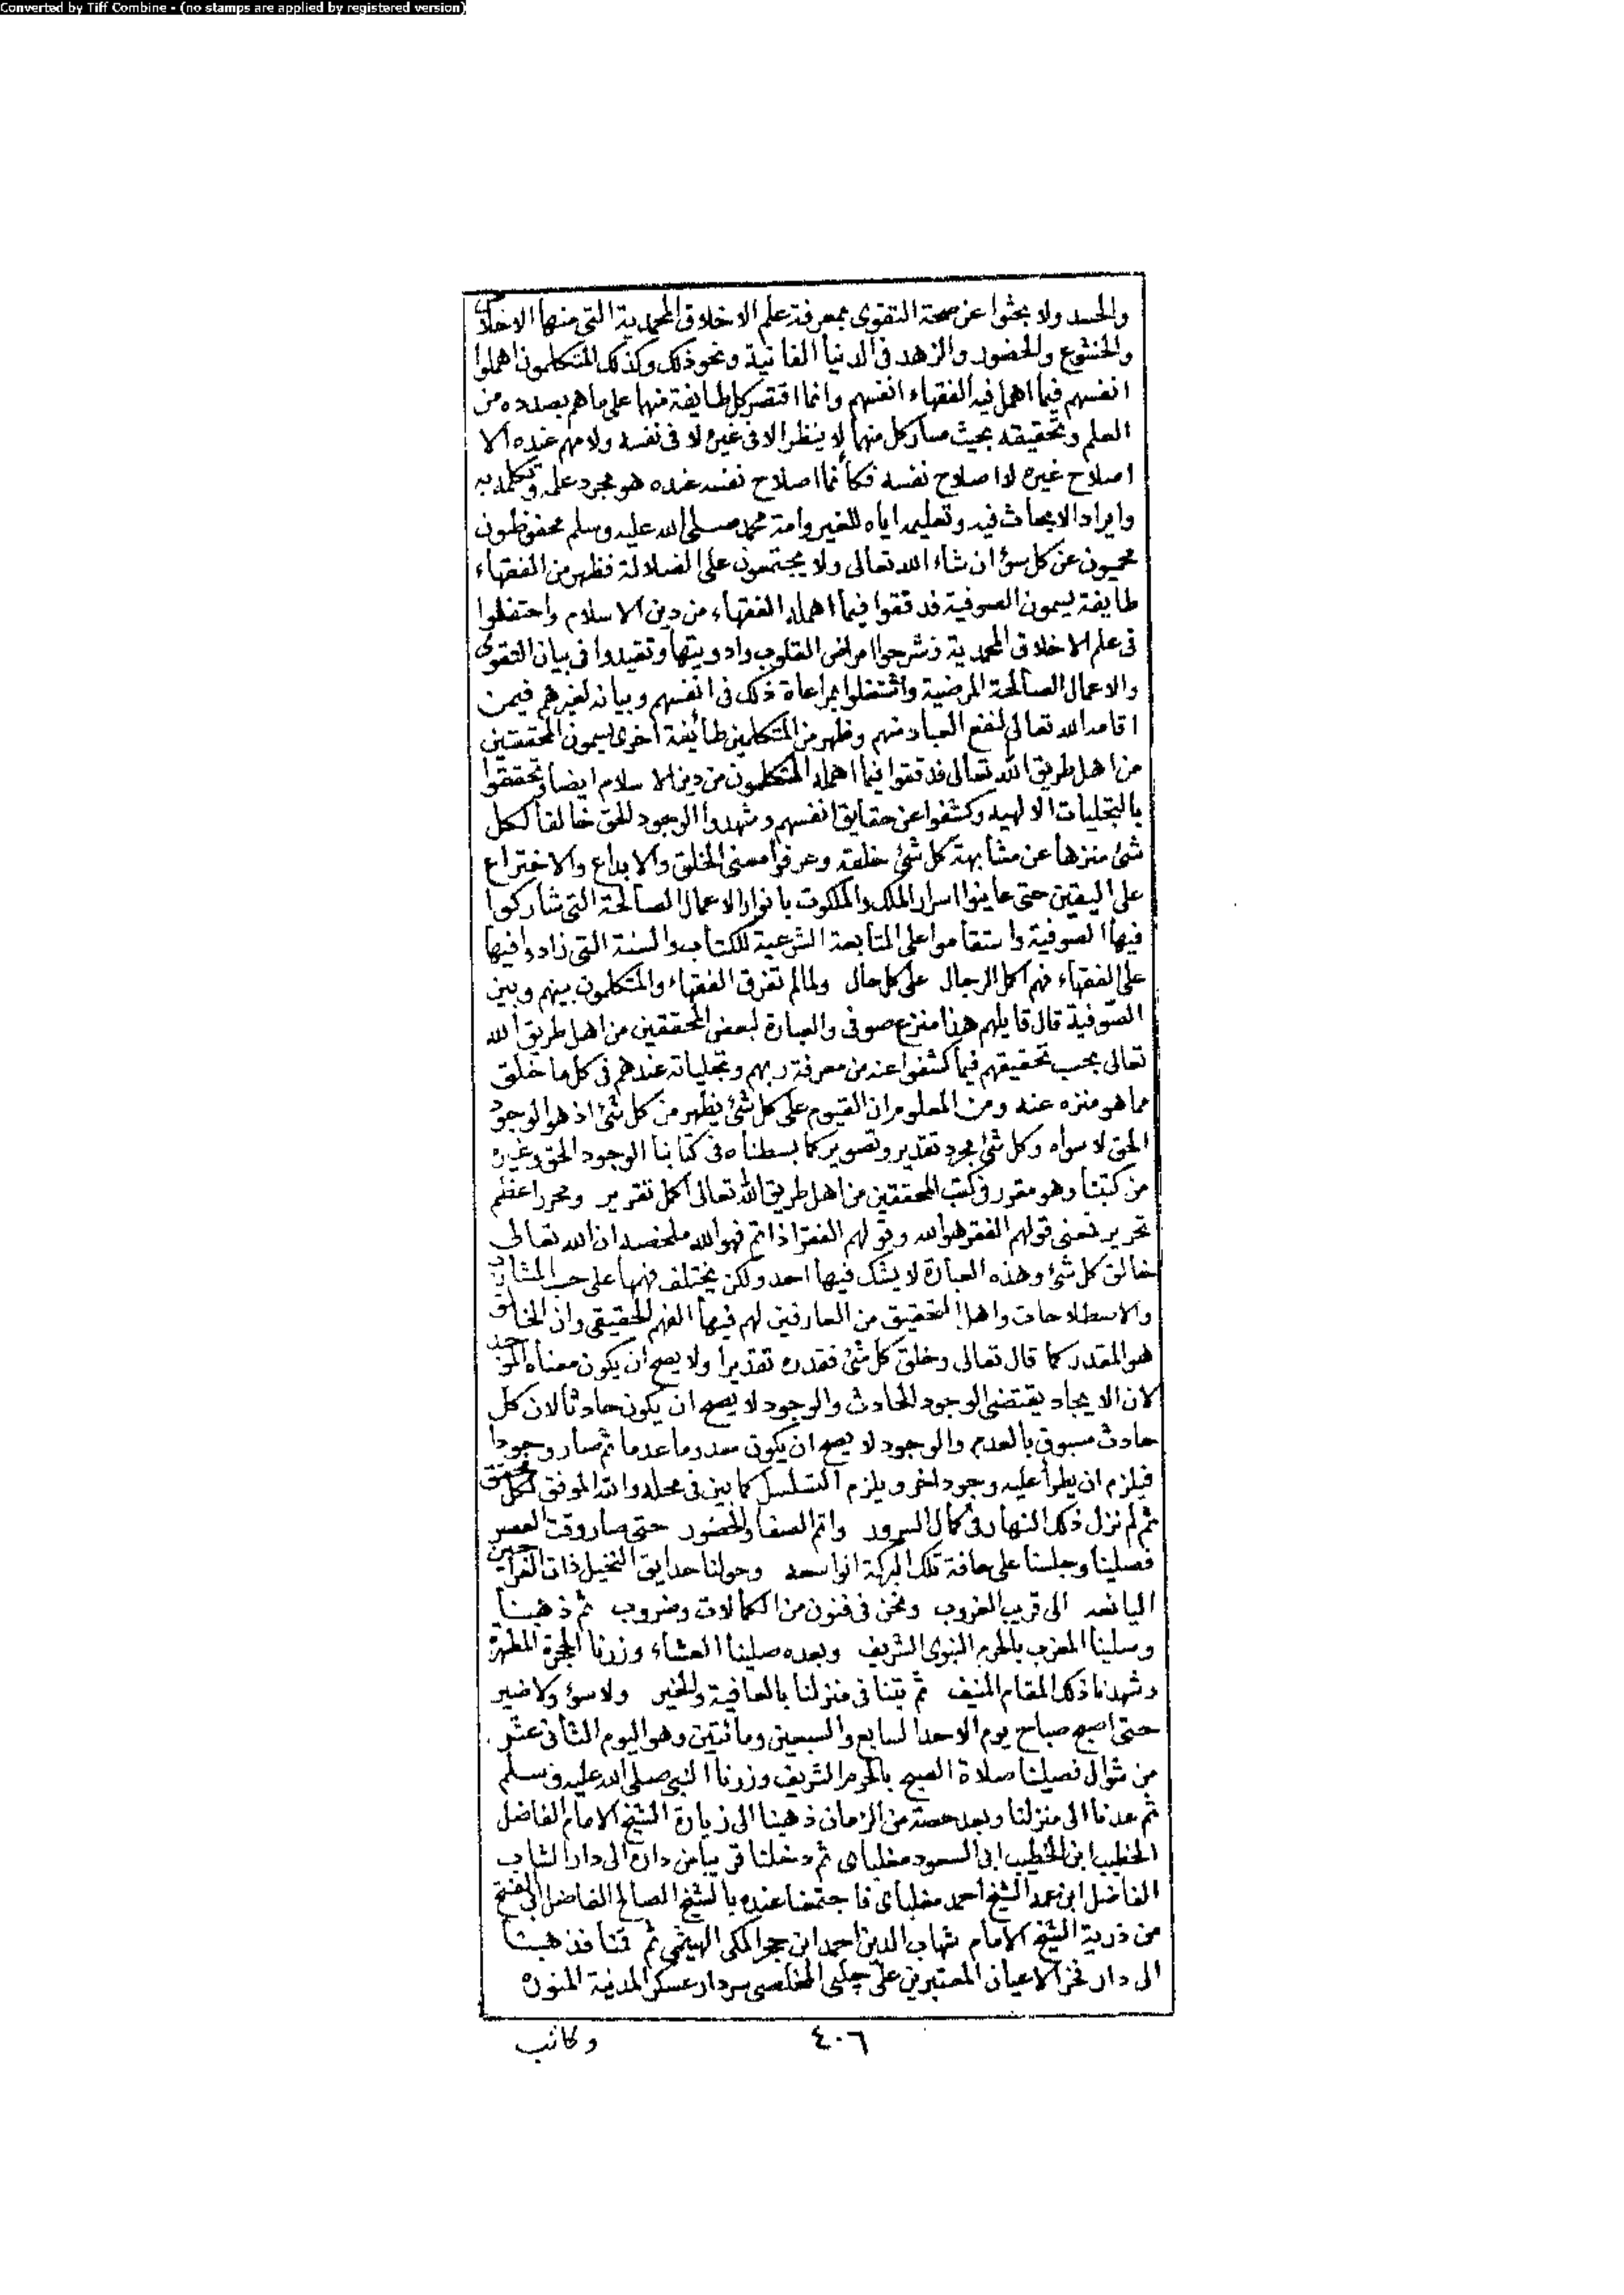 Converted by Tiff Combine - (no stamps are applied by registered version)
والحسد ولا بحثوا عن صحة التقوى بمعرفة علم الاخلاق المحمدية التي منها الاخلاص
والخشوع والحضور والزهد في الدنيا الفانية ونحو ذلك وكذلك المتكلمون اهملوا
انفسهم فيما اهمل فيه الفقهاء انفسهم وانما اقتصر كل طايفة منها على ما هم بصدده من
العلم وتحقيقه بحيث صار كل منهما لا ينظر الا في غيره لا في نفسه ولا مهم عنده الا
اصلاح غيره لا اصلاح نفسه فكأنما اصلاح نفسه عنده هو مجرد علمه وتكلمه به
وايراد الابحاث فيه وتعليمه اياه للغير وامة محمد صلى الله عليه وسلم محفوظون
محميون عن كل سؤ ان شاء الله تعالى ولا يجتمعون على الضلالة فظهر من الفقهاء
طايفة يسمون الصوفية فدققوا فيما اهمله الفقهاء من دين الاسلام واحتفلوا
في علم الاخلاق المحمدية فشرحوا امراض القلوب وادويتها وتقيدوا في بيان التقوى
والاعمال الصالحة المرضية واشتغلوا بمراعاة ذلك في انفسهم وبيانه لغيرهم فيمن
اقامه الله تعالى لنفع العباد منهم وظهر من المتكلمين طائفة اخرى يسمون المحققين
من اهل طريق الله تعالى فدققوا فيما اهمله المتكلمون من دين الاسلام ايضا وتحققوا
بالتجليات الالهيه وكشفوا عن حقايق انفسهم وشهدوا الوجود للحق خالقا لكل
شئ منزها عن مشابهة كل شئ خلقه وعرفوا معنى الخلق والابداع والاختراع
على اليقين حتى عاينوا اسرار الملك والملكوت بانوار الاعمال الصالحة التي شاركوا
فيها الصوفية واستقاموا على المتابعة الشرعية للكتاب والسنة التي زادوا فيها
على الفقهاء فهم اكمل الرجال على كل حال ولما لم تفرق الفقهاء والمتكلمون بينهم وبين
الصوفية قال قايلهم هذا منزع صوفى والعبارة لبعض المحققين من اهل طريق الله
تعالى بحسب تحقيقهم فيما كشفوا عنه من معرفة ربهم وتجلياته عندهم في كل ما خلق
مما هو منزه عنه ومن المعلوم ان القيوم على كل شئ يظهر من كل شئ اذ هو الوجود
الحق لا سواه وكل شئ مجرد تقدير وتصوير كما بسطناه في كتابنا الوجود الحق وغيره
من كتبنا وهو مقرر في كتب المحققين من اهل طريق الله تعالى اكمل تقرير ومحرر اعظم
تحرير فمعنى قولهم الفقر هو الله وقولهم الفقر اذا تم فهو الله ملخصه ان الله تعالى
خالق كل شئ وهذه العبارة لا يشك فيها احد ولكن يختلف فهمها على حسب المشارب
والاصطلاحات واهل التحقيق من العارفين لهم فيها الفهم الحقيقي وان الخالق
هو المقدر كما قال تعالى وخلق كل شئ فقدره تقديرا ولا يصح ان يكون معناه الموجد
لان الايجاد يقتضى الوجود الحادث والوجود لا يصح ان يكون حادثا لان كل
حادث مسبوق بالعدم والوجود لا يصح ان يكون معدوما عدما ثم صار وجودا
فيلزم ان يطرأ عليه وجود اخر ويلزم التسلسل كما بين في محله والله الموفق لكل محقق
ثم لم نزل ذلك النهار في كمال السرور واتم الصفا والحضور حتى صار وقت العصر
فصلينا وجلسنا على حافة تلك البركة الواسعه وحولنا حدايق النخيل ذات العراجين
اليانعه الى قريب الغروب ونحن في فنون من الكمالات وضروب ثم ذهبنا
وصلينا المغرب بالحرم النبوى الشريف وبعده صلينا العشاء وزرنا الحجرة المطهرة
وشهدنا ذلك المقام المنيف ثم بتنا في منزلنا بالعافية والخير ولا سؤ ولا ضير
حتى اصبح صباح يوم الاحد السابع والسبعين ومائتين وهو اليوم الثانى عشر
من شوال فصلينا صلاة الصبح بالحرم الشريف وزرنا النبى صلى الله عليه وسلم
ثم عدنا الى منزلنا وبعد حصة من الزمان ذهبنا الى زيارة الشيخ الامام الفاضل
الخطيب ابن الخطيب ابى السعود مغلباى ثم دخلنا قريبا من داره الى دار الشاب
الفاضل ابن عمه الشيخ احمد مغلباى فاجتمعنا عنده بالشيخ الصالح الفاضل ابى الفتح
من ذرية الشيخ الامام شهاب الدين احمد ابن حجر المكى الهيثمى ثم قمنا فذهبنا
الى دار فخر الاعيان المعتبرين على چلبى المخلصى سردار عسكر المدينة المنوره
٤٠٦
وكاتب